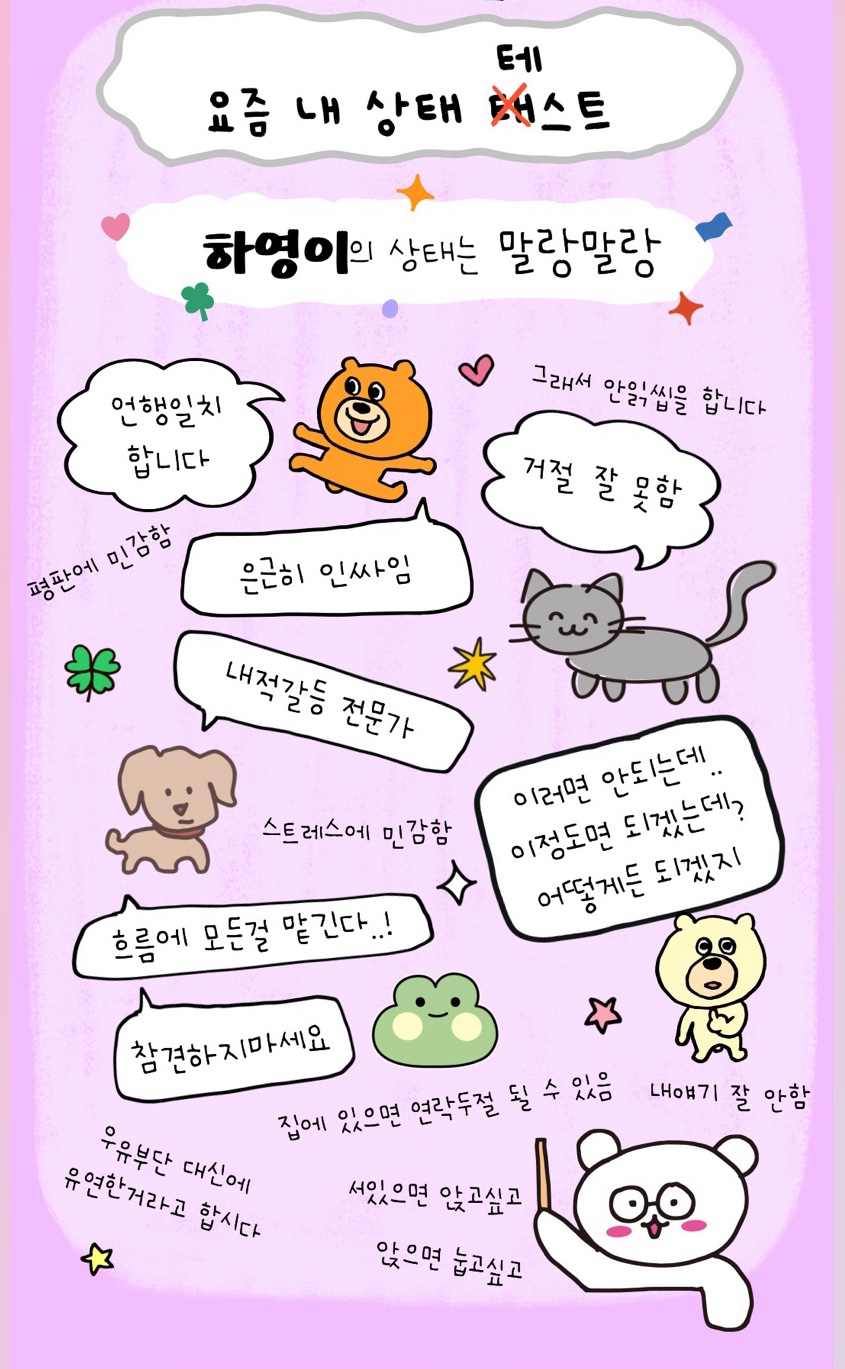 테
요즘 내 상태 태스트
하영이의 상태는 말랑말랑
언행일치
합니다
그래서 안읽씹을 합니다
거절 잘 못함
평판에 민감함
은근히 인싸임
내적갈등 전문가
이러면 안되는데..
이정도면 되겠는데?
어떻게든 되겠지
스트레스에 민감함
흐름에 모든걸 맡긴다..!
참견하지마세요
집에 있으면 연락두절 될 수 있음
내얘기 잘 안함
우유부단 대신에
유연한거라고 합시다
서있으면 앉고싶고
앉으면 눕고싶고